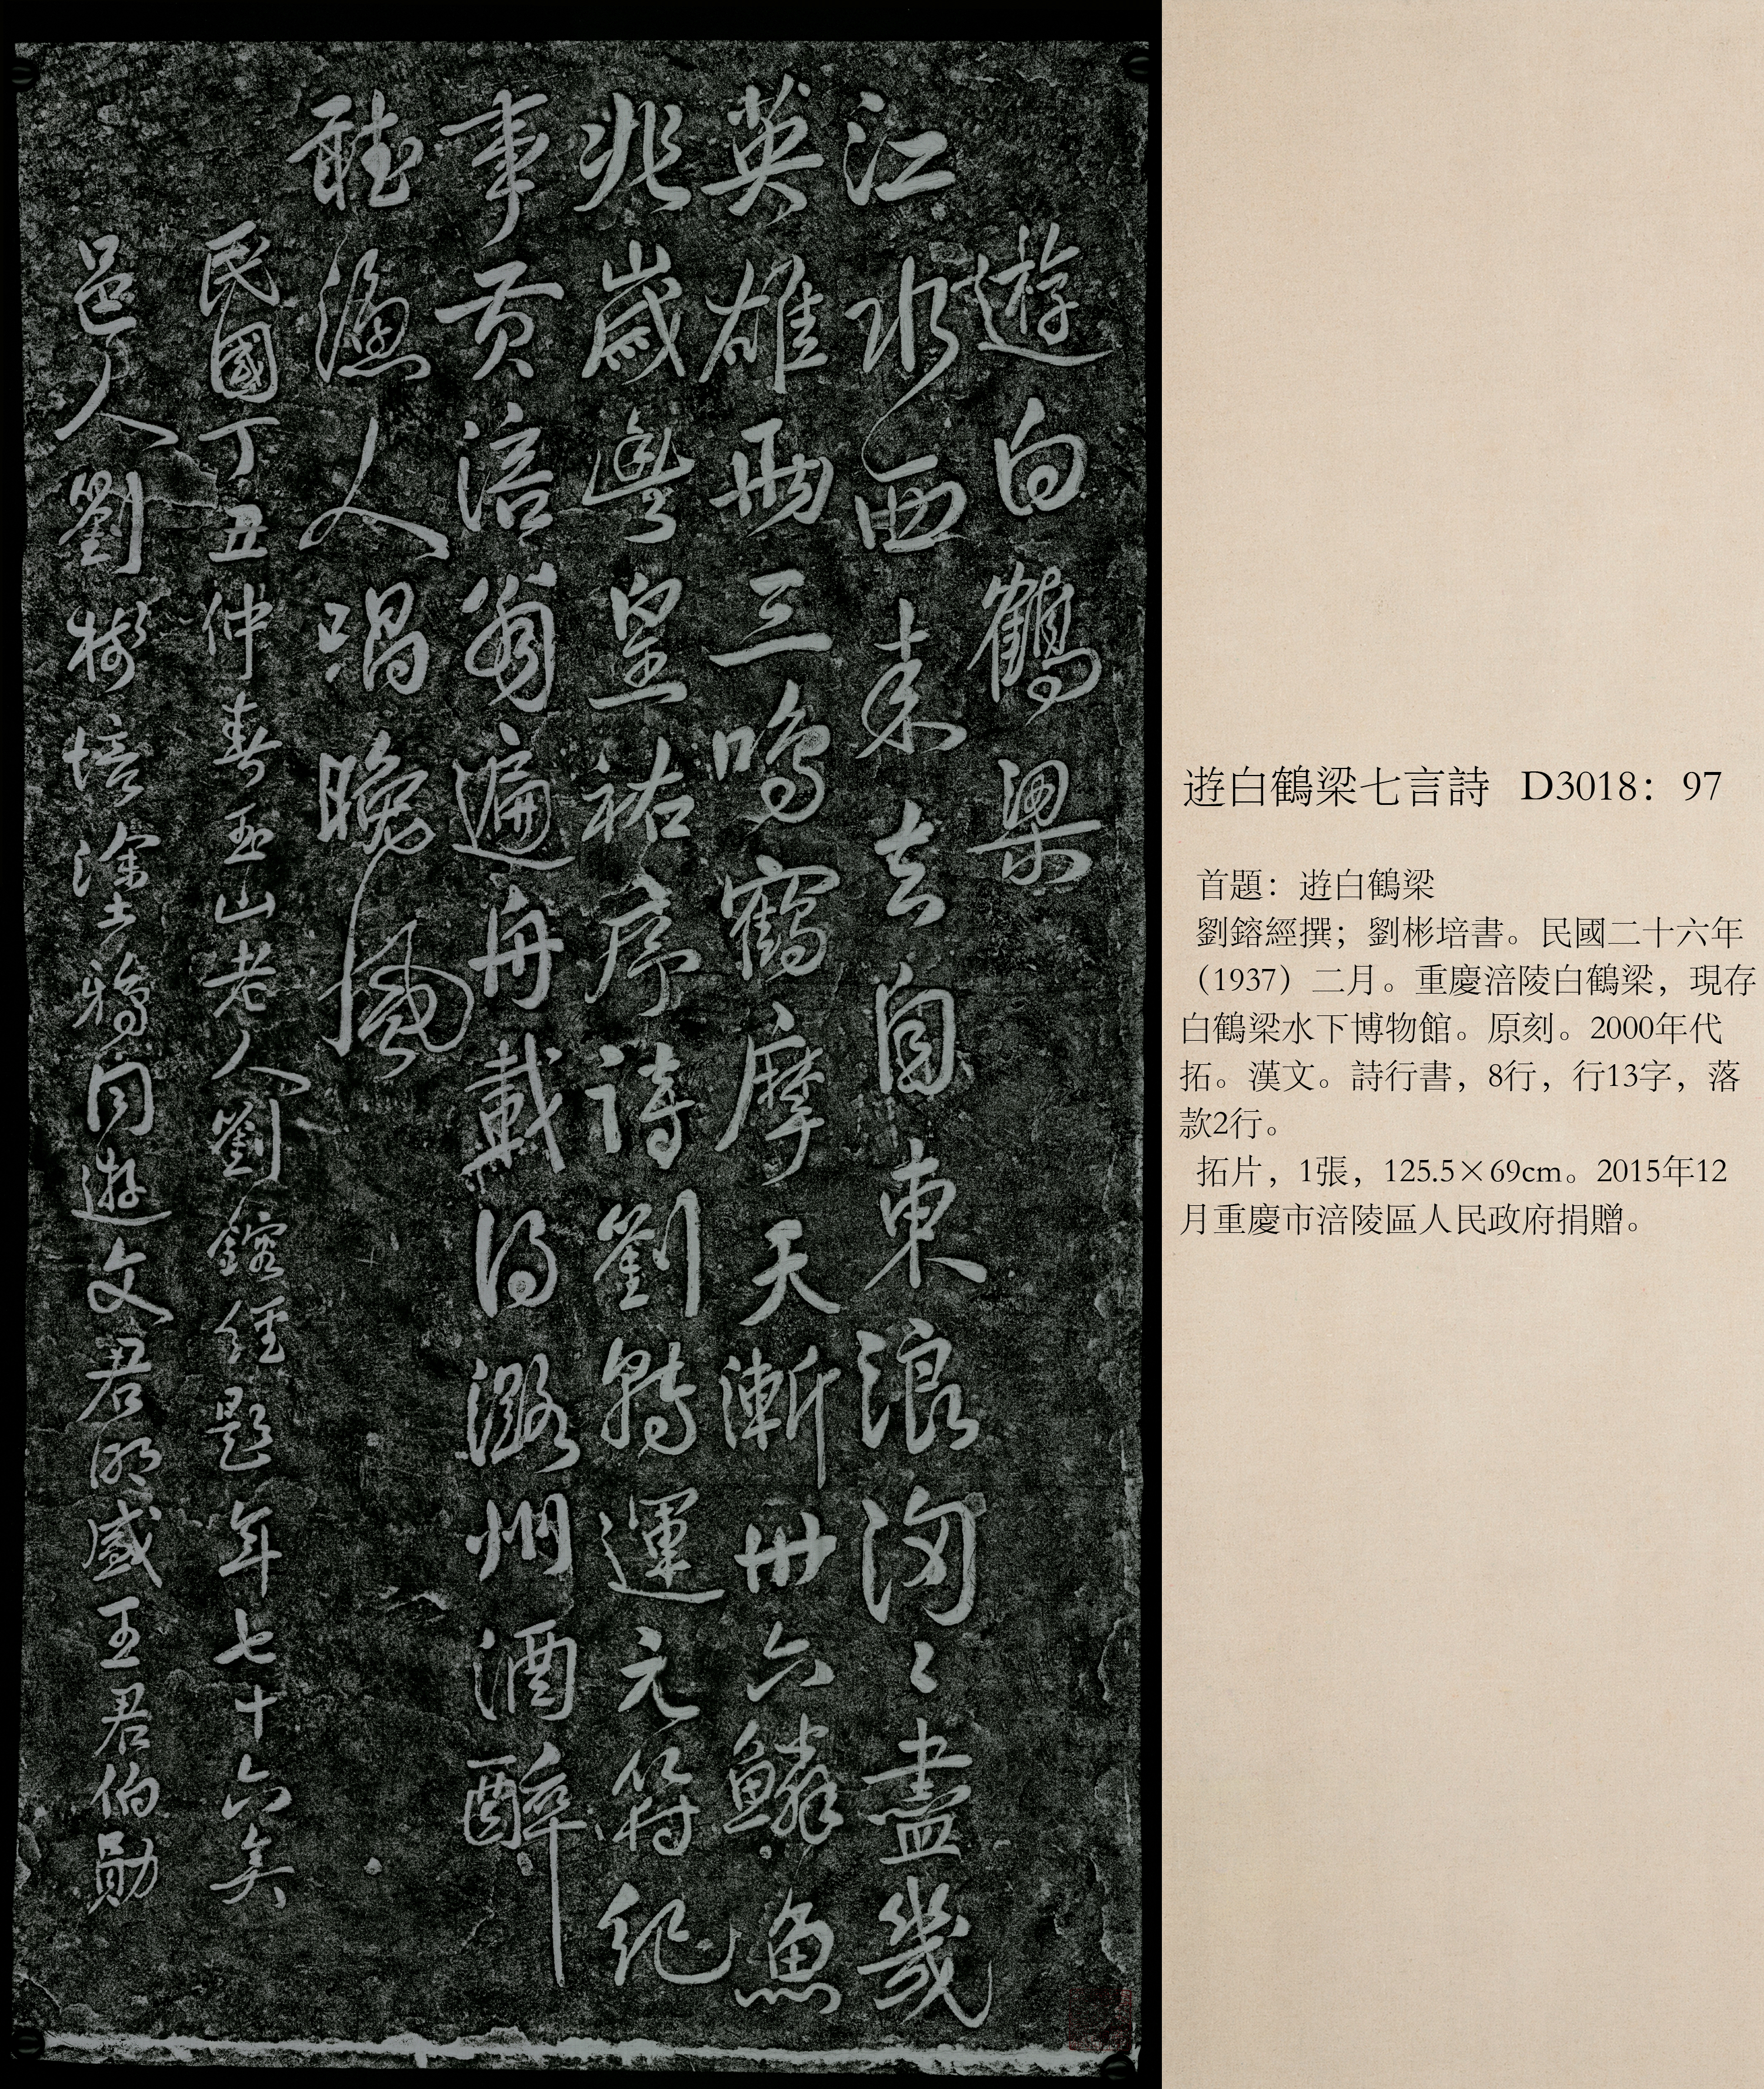 遊白鶴梁
江水西來去自東浪淘〻盡幾
英雄兩三鳴鶴摩天漸卅六鱗魚
兆歲豐皇祐序詩劉轉運元符紀
事黃涪翁遍舟載得潞州酒醉
聽漁人唱晚風
民國丁丑仲春玉山老人劉鎔經題年七十六矣
邑人劉彬培塗鴉同遊文君明盛王君伯勛
遊白鶴梁七言詩 D3018：97
首題：遊白鶴梁
劉鎔經撰；劉彬培書。民國二十六年
（1937）二月。重慶涪陵白鶴梁，現存
白鶴梁水下博物館。原刻。2000年代
拓。漢文。詩行書，8行，行13字，落
款2行。
拓片，1張，125.5×69cm。2015年12
月重慶市涪陵區人民政府捐贈。